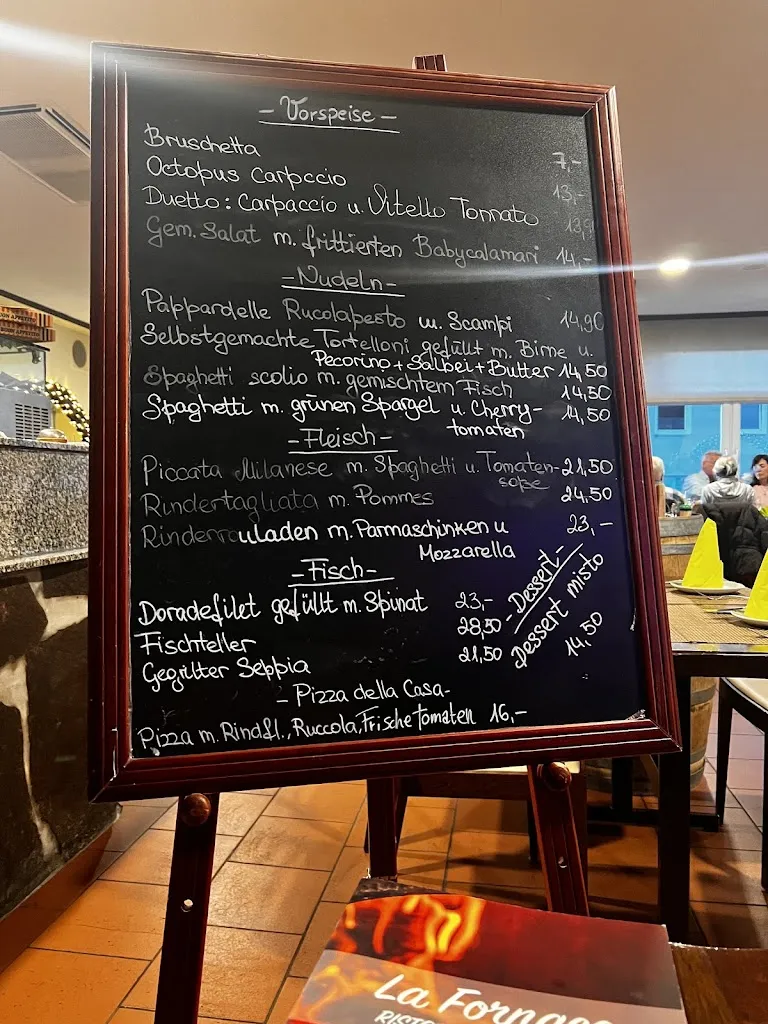 - Vorspeise -
Bruschetta 7,-
Octopus Carpccio 13,-
Duetto: Carpaccio u. Vitello Tonnato 13,9
Gem. Salat m. frittierten Babycalamari 14,-
- Nudeln -
Pappardelle Rucolapesto u. Scampi 14,90
Selbstgemachte Tortelloni gefüllt m. Birne u.
Pecorino + Salbei + Butter 14,50
Spaghetti scolio m. gemischtem Fisch 14,50
Spaghetti m. grünen Spargel u. Cherry- 14,50
tomaten
- Fleisch -
Piccata Milanese m. Spaghetti u. Tomaten- 21,50
soße
Rindertagliata m. Pommes 24,50
Rinderrouladen m. Parmaschinken u 23,-
Mozzarella
- Fisch -
Doradefilet gefüllt m. Spinat 23,-
Fischteller 28,50
Gegrillter Seppia 21,50
- Dessert -
Dessert misto
14,50
- Pizza della Casa -
Pizza m. Rindfl., Ruccola, Frische Tomaten 16,-
La Fornace